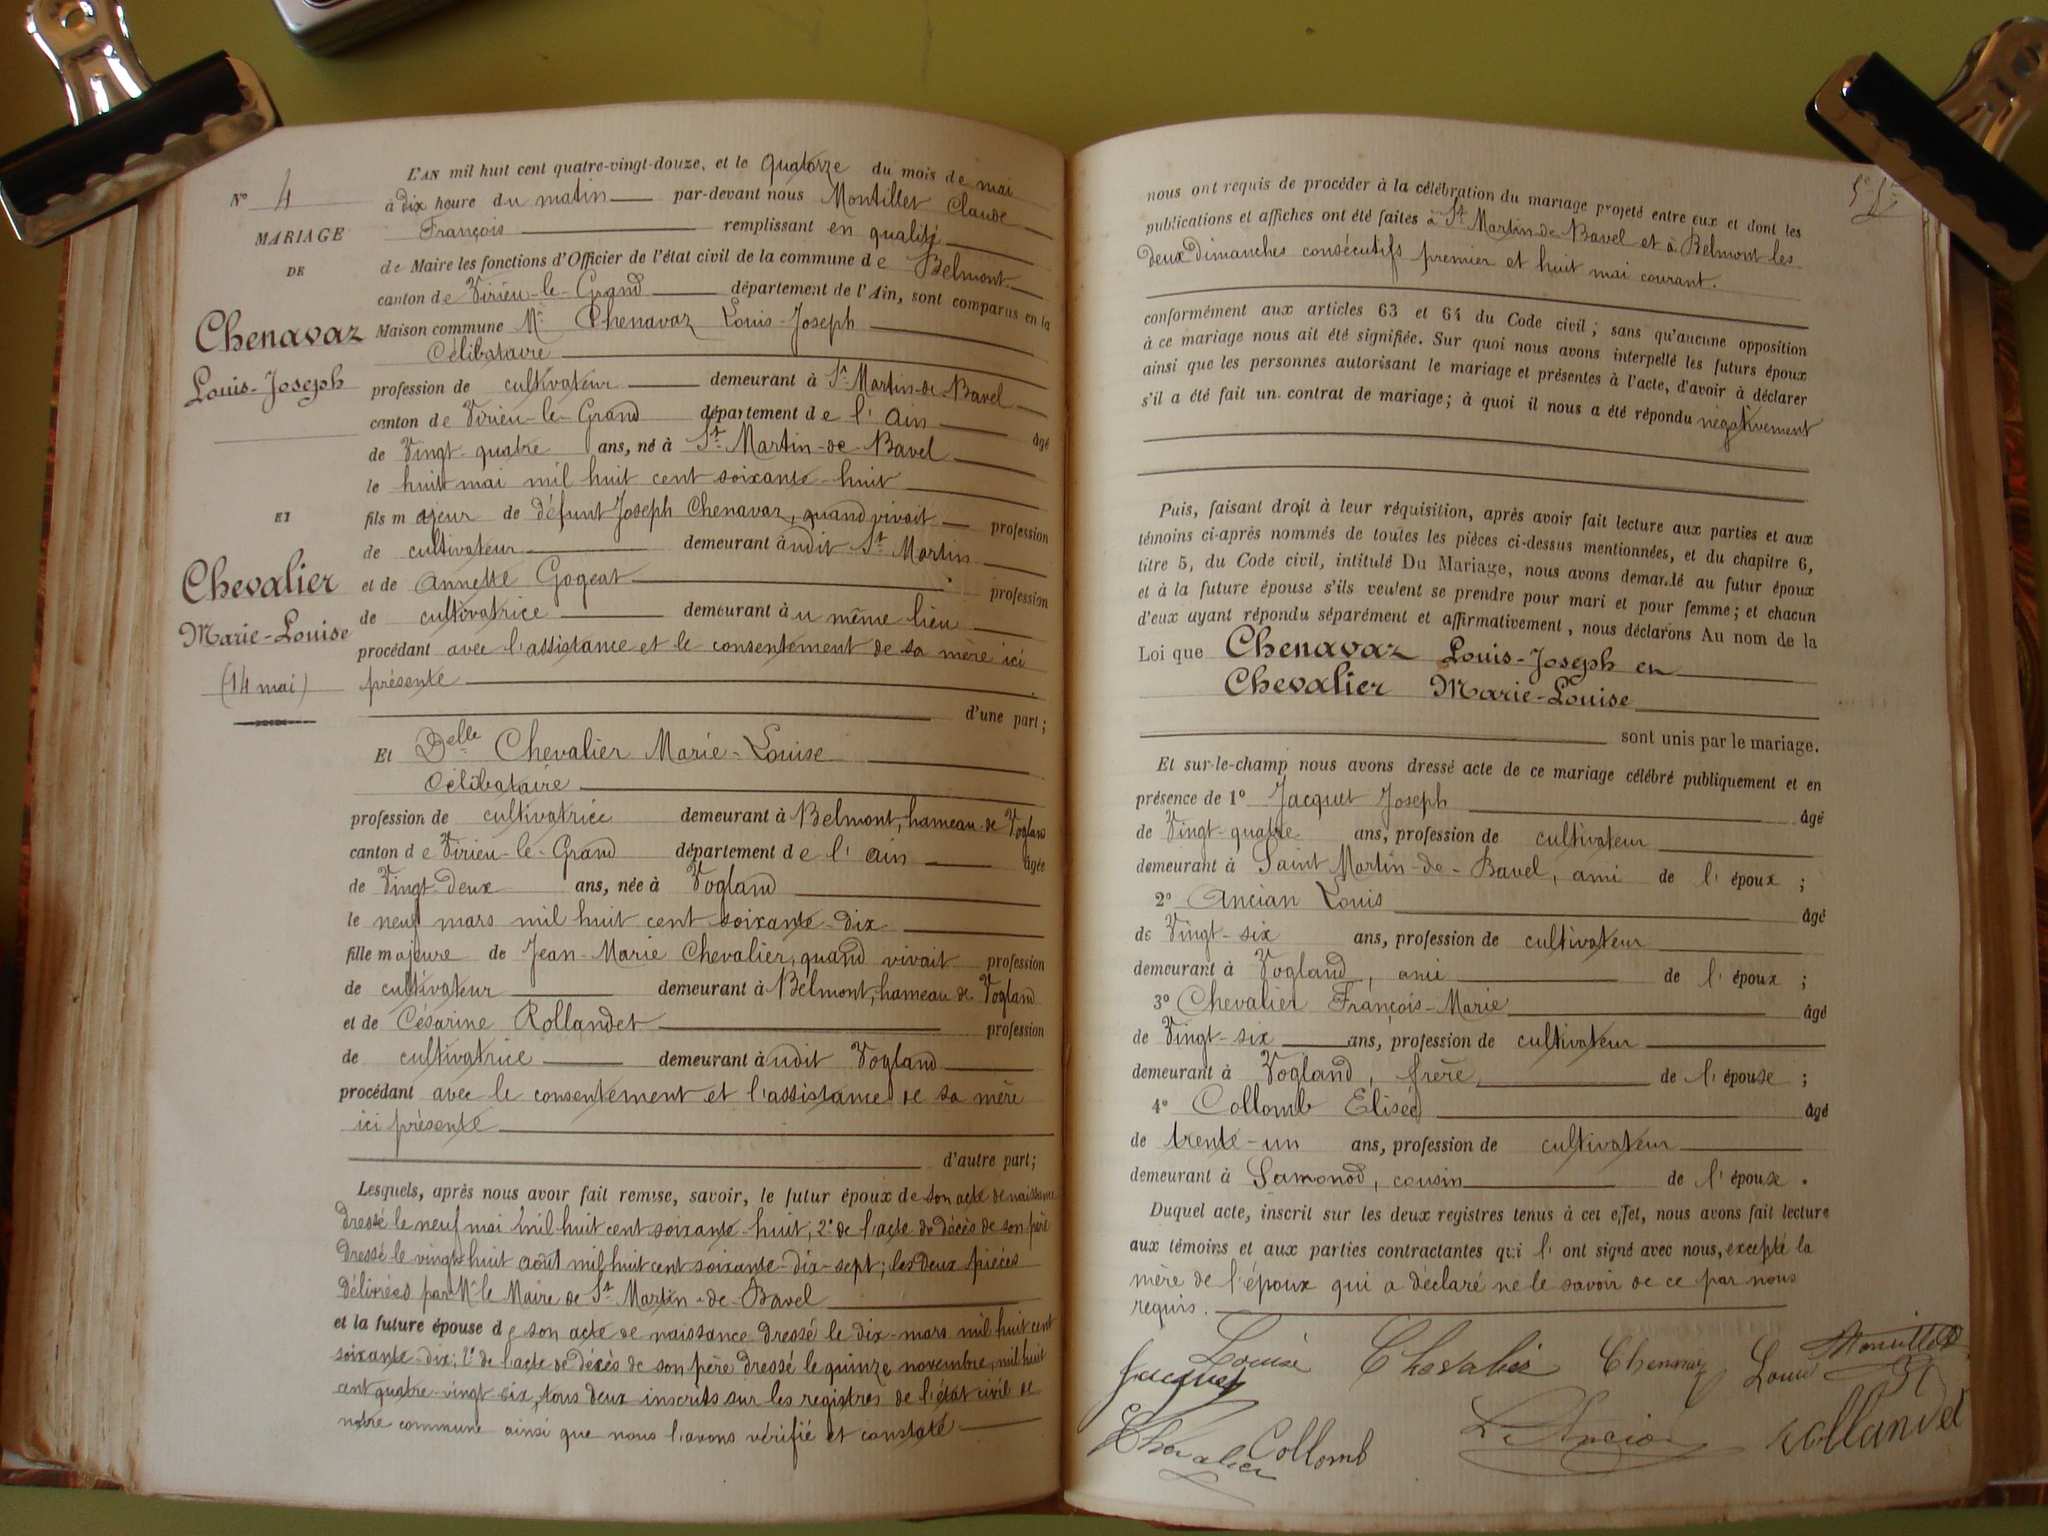 N° 4
MARIAGE
DE
Chenavaz
Louis-Joseph
ET
Chevalier
Marie-Louise
(14 mai)
L'AN mil huit cent quatre-vingt-douze, et le Quatorze du mois de mai
à dix heure du matin par-devant nous Montillet Claude
François remplissant en qualité
de Maire les fonctions d'Officier de l'état civil de la commune de Belmont
canton de Virieu-le-Grand département de l'Ain, sont comparus en la
Maison commune Mr Chenavaz Louis-Joseph
Célibataire
profession de cultivateur demeurant à St Martin-de-Bavel
canton de Virieu-le-Grand département de l'ain âgé
de Vingt-quatre ans, né à St Martin-de-Bavel
le huit mai mil huit cent soixante-huit
fils majeur de défunt Joseph Chenavaz, quand vivait profession
de cultivateur demeurant audit St Martin
et de Annette Gogeat profession
de cultivatrice demeurant au même lieu
procédant avec l'assistance et le consentement de sa mère ici
présente
d'une part;
Et Delle Chevalier Marie-Louise
Célibataire
profession de cultivatrice demeurant à Belmont, hameau de Vogland
canton de Virieu-le-Grand département de l'ain âgée
de Vingt-deux ans, née à Vogland
le neuf mars mil huit cent soixante-dix
fille majeure de Jean-Marie Chevalier, quand vivait profession
de cultivateur demeurant à Belmont, hameau de Vogland
et de Césarine Rollandet profession
de cultivatrice demeurant audit Vogland
procédant avec le consentement et l'assistance de sa mère
ici présente
d'autre part;
Lesquels, après nous avoir fait remise, savoir, le futur époux de son acte de naissance
dressé le neuf mai mil huit cent soixante-huit, 2° de l'acte de décès de son père
dressé le vingt-huit août mil huit cent soixante-dix-sept; les deux pièces
délivrées par Mr le Maire de St Martin-de-Bavel
et la future épouse de son acte de naissance dressé le dix-mars mil huit cent
soixante-dix; 2° de l'acte de décès de son père dressé le quinze novembre mil huit
cent quatre-vingt-six, tous deux inscrits sur les registres de l'état civil de
notre commune ainsi que nous l'avons vérifié et constaté
nous ont requis de procéder à la célébration du mariage projeté entre eux et dont les
publications et affiches ont été faites à St Martin-de-Bavel et à Belmont les
deux dimanches consécutifs premier et huit mai courant.
conformément aux articles 63 et 64 du Code civil; sans qu'aucune opposition
à ce mariage nous ait été signifiée. Sur quoi nous avons interpellé les futurs époux
ainsi que les personnes autorisant le mariage et présentes à l'acte, d'avoir à déclarer
s'il a été fait un contrat de mariage; à quoi il nous a été répondu négativement
Puis, faisant droit à leur réquisition, après avoir fait lecture aux parties et aux
témoins ci-après nommés de toutes les pièces ci-dessus mentionnées, et du chapitre 6,
titre 5, du Code civil, intitulé Du Mariage, nous avons demandé au futur époux
et à la future épouse s'ils veulent se prendre pour mari et pour femme; et chacun
d'eux ayant répondu séparément et affirmativement, nous déclarons Au nom de la
Loi que Chenavaz Louis-Joseph en
Chevalier Marie-Louise
sont unis par le mariage.
Et sur-le-champ nous avons dressé acte de ce mariage célébré publiquement et en
présence de 1° Jacquet Joseph âgé
de Vingt-quatre ans, profession de cultivateur
demeurant à Saint Martin-de-Bavel, ami de l'époux;
2° Ancian Louis âgé
de Vingt-six ans, profession de cultivateur
demeurant à Vogland, ami de l'époux;
3° Chevalier François-Marie âgé
de Vingt-six ans, profession de cultivateur
demeurant à Vogland, frère de l'épouse;
4° Collomb Elisée âgé
de trente-un ans, profession de cultivateur
demeurant à Samonod, cousin de l'épouse.
Duquel acte, inscrit sur les deux registres tenus à cet effet, nous avons fait lecture
aux témoins et aux parties contractantes qui l'ont signé avec nous, excepté la
mère de l'époux qui a déclaré ne le savoir de ce par nous
requis.
Louise Chevalier Chenavaz Louis Montillet
Jacquet
Chevalier Collomb L. Ancian Rollandet